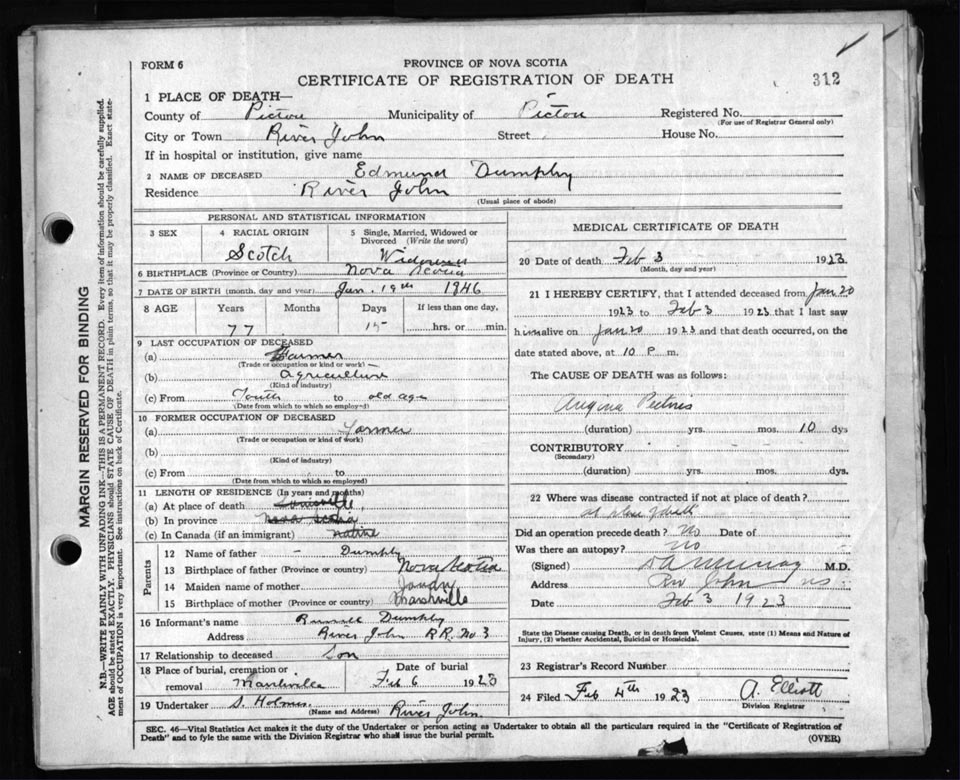 FORM 6
PROVINCE OF NOVA SCOTIA
CERTIFICATE OF REGISTRATION OF DEATH
312
1 PLACE OF DEATH—
County of Pictou Municipality of Pictou Registered No.
(For use of Registrar General only)
City or Town River John Street House No.
If in hospital or institution, give name
2 NAME OF DECEASED Edmund Dumphy
Residence River John
(Usual place of abode)
PERSONAL AND STATISTICAL INFORMATION
3 SEX 4 RACIAL ORIGIN 5 Single, Married, Widowed or Divorced (Write the word)
Scotch Widower
6 BIRTHPLACE (Province or Country) Nova Scotia
7 DATE OF BIRTH (month, day and year) Jan. 19th 1846
8 AGE Years Months Days If less than one day,
77 15 hrs. or min.
9 LAST OCCUPATION OF DECEASED
(a) Farmer
(Trade or occupation or kind of work)
(b) Agriculture
(Kind of industry)
(c) From Youth to old age
(Date from which to which so employed)
10 FORMER OCCUPATION OF DECEASED
(a) Farmer
(Trade or occupation or kind of work)
(b)
(Kind of industry)
(c) From to
(Date from which to which so employed)
11 LENGTH OF RESIDENCE (In years and months)
(a) At place of death
(b) In province Nova Scotia
(c) In Canada (if an immigrant) Native
Parents
12 Name of father – Dumphy
13 Birthplace of father (Province or country) Nova Scotia
14 Maiden name of mother
15 Birthplace of mother (Province or country) Marshville
16 Informant's name Dumphy
Address River John R.R. No 3
17 Relationship to deceased Son
18 Place of burial, cremation or removal Marshville Date of burial Feb 6 1923
19 Undertaker S. Holmes River John.
(Name and Address)
MEDICAL CERTIFICATE OF DEATH
20 Date of death Feb 3 1923
(Month, day and year)
21 I HEREBY CERTIFY, that I attended deceased from Jan 20
1923 to Feb 3 1923 that I last saw
him alive on Jan 20 1923 and that death occurred, on the
date stated above, at 10 P m.
The CAUSE OF DEATH was as follows:
Angina Pectoris
(duration) yrs. mos. 10 dys
CONTRIBUTORY
(Secondary)
(duration) yrs. mos. dys.
22 Where was disease contracted if not at place of death?
at place of death
Did an operation precede death? No Date of
Was there an autopsy? no
(Signed) M.D.
Address Riv John NS
Date Feb 3 1923
State the Disease causing Death, or in death from Violent Causes, state (1) Means and Nature of
Injury, (2) whether Accidental, Suicidal or Homicidal.
23 Registrar's Record Number
24 Filed Feb 4th 1923 A. Elliott
Division Registrar
SEC. 46—Vital Statistics Act makes it the duty of the Undertaker or person acting as Undertaker to obtain all the particulars required in the "Certificate of Registration of
Death" and to fyle the same with the Division Registrar who shall issue the burial permit.
(OVER)
MARGIN RESERVED FOR BINDING
N.B.—WRITE PLAINLY WITH UNFADING INK—THIS IS A PERMANENT RECORD. Every item of information should be carefully supplied.
AGE should be stated EXACTLY. PHYSICIANS should STATE CAUSE OF DEATH in plain terms, so that it may be properly classified. Exact state-
ment of OCCUPATION is very important. See instructions on back of Certificate.